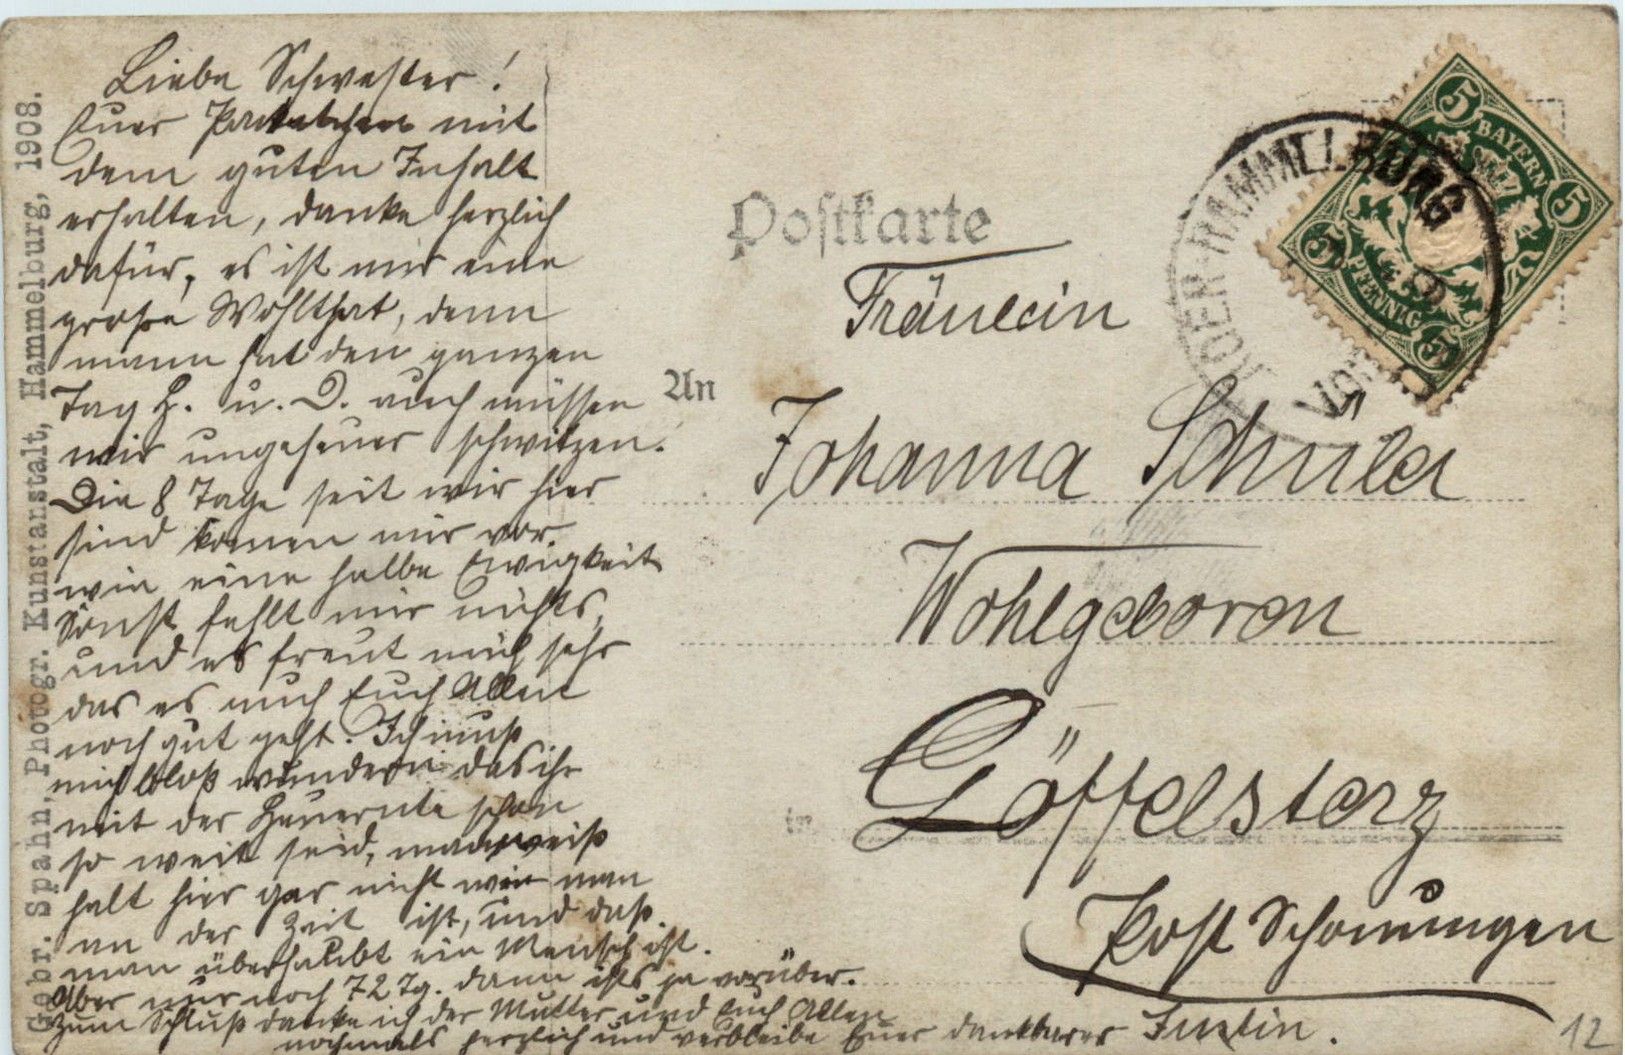 Liebe Schwester!
Euer Packetchen mit
dem guten Inhalt
erhalten, danke herzlich
dafür, es ist mir eine
große Wohlthat, denn
mann hat den ganzen
Tag H. u. D. auch müssen
wir ungeheuer schwitzen.
Die 8 Tage seit wir hier
sind komen mir vor
wie eine halbe Ewigkeit
Sonst fehlt mir nichts,
und es freut mich sehr
das es auch Euch Allen
noch gut geht. Ich muß
mich bloß wundern das ihr
mit der Heuernte schon
so weit seid, man weiß
halt hier gar nicht wie man
an der Zeit ist, und daß
man überhaubt ein Mensch ist.
Aber nur noch 72 Tg. dann ists ja vorüber.
Zum Schluß danke ich der Mutter und Euch Allen
nochmals herzlich und verbleibe Euer dankbarer Justin.
Gebr. Spahn, Photogr. Kunstanstalt, Hammelburg, 1908.
Postkarte
An
Fräulein
Johanna Schüler
Wohlgeboren
in Löffelsterz
Post Schonungen
HAMMELBURG
5 BAYERN 5
5 PFENNIG 5
12